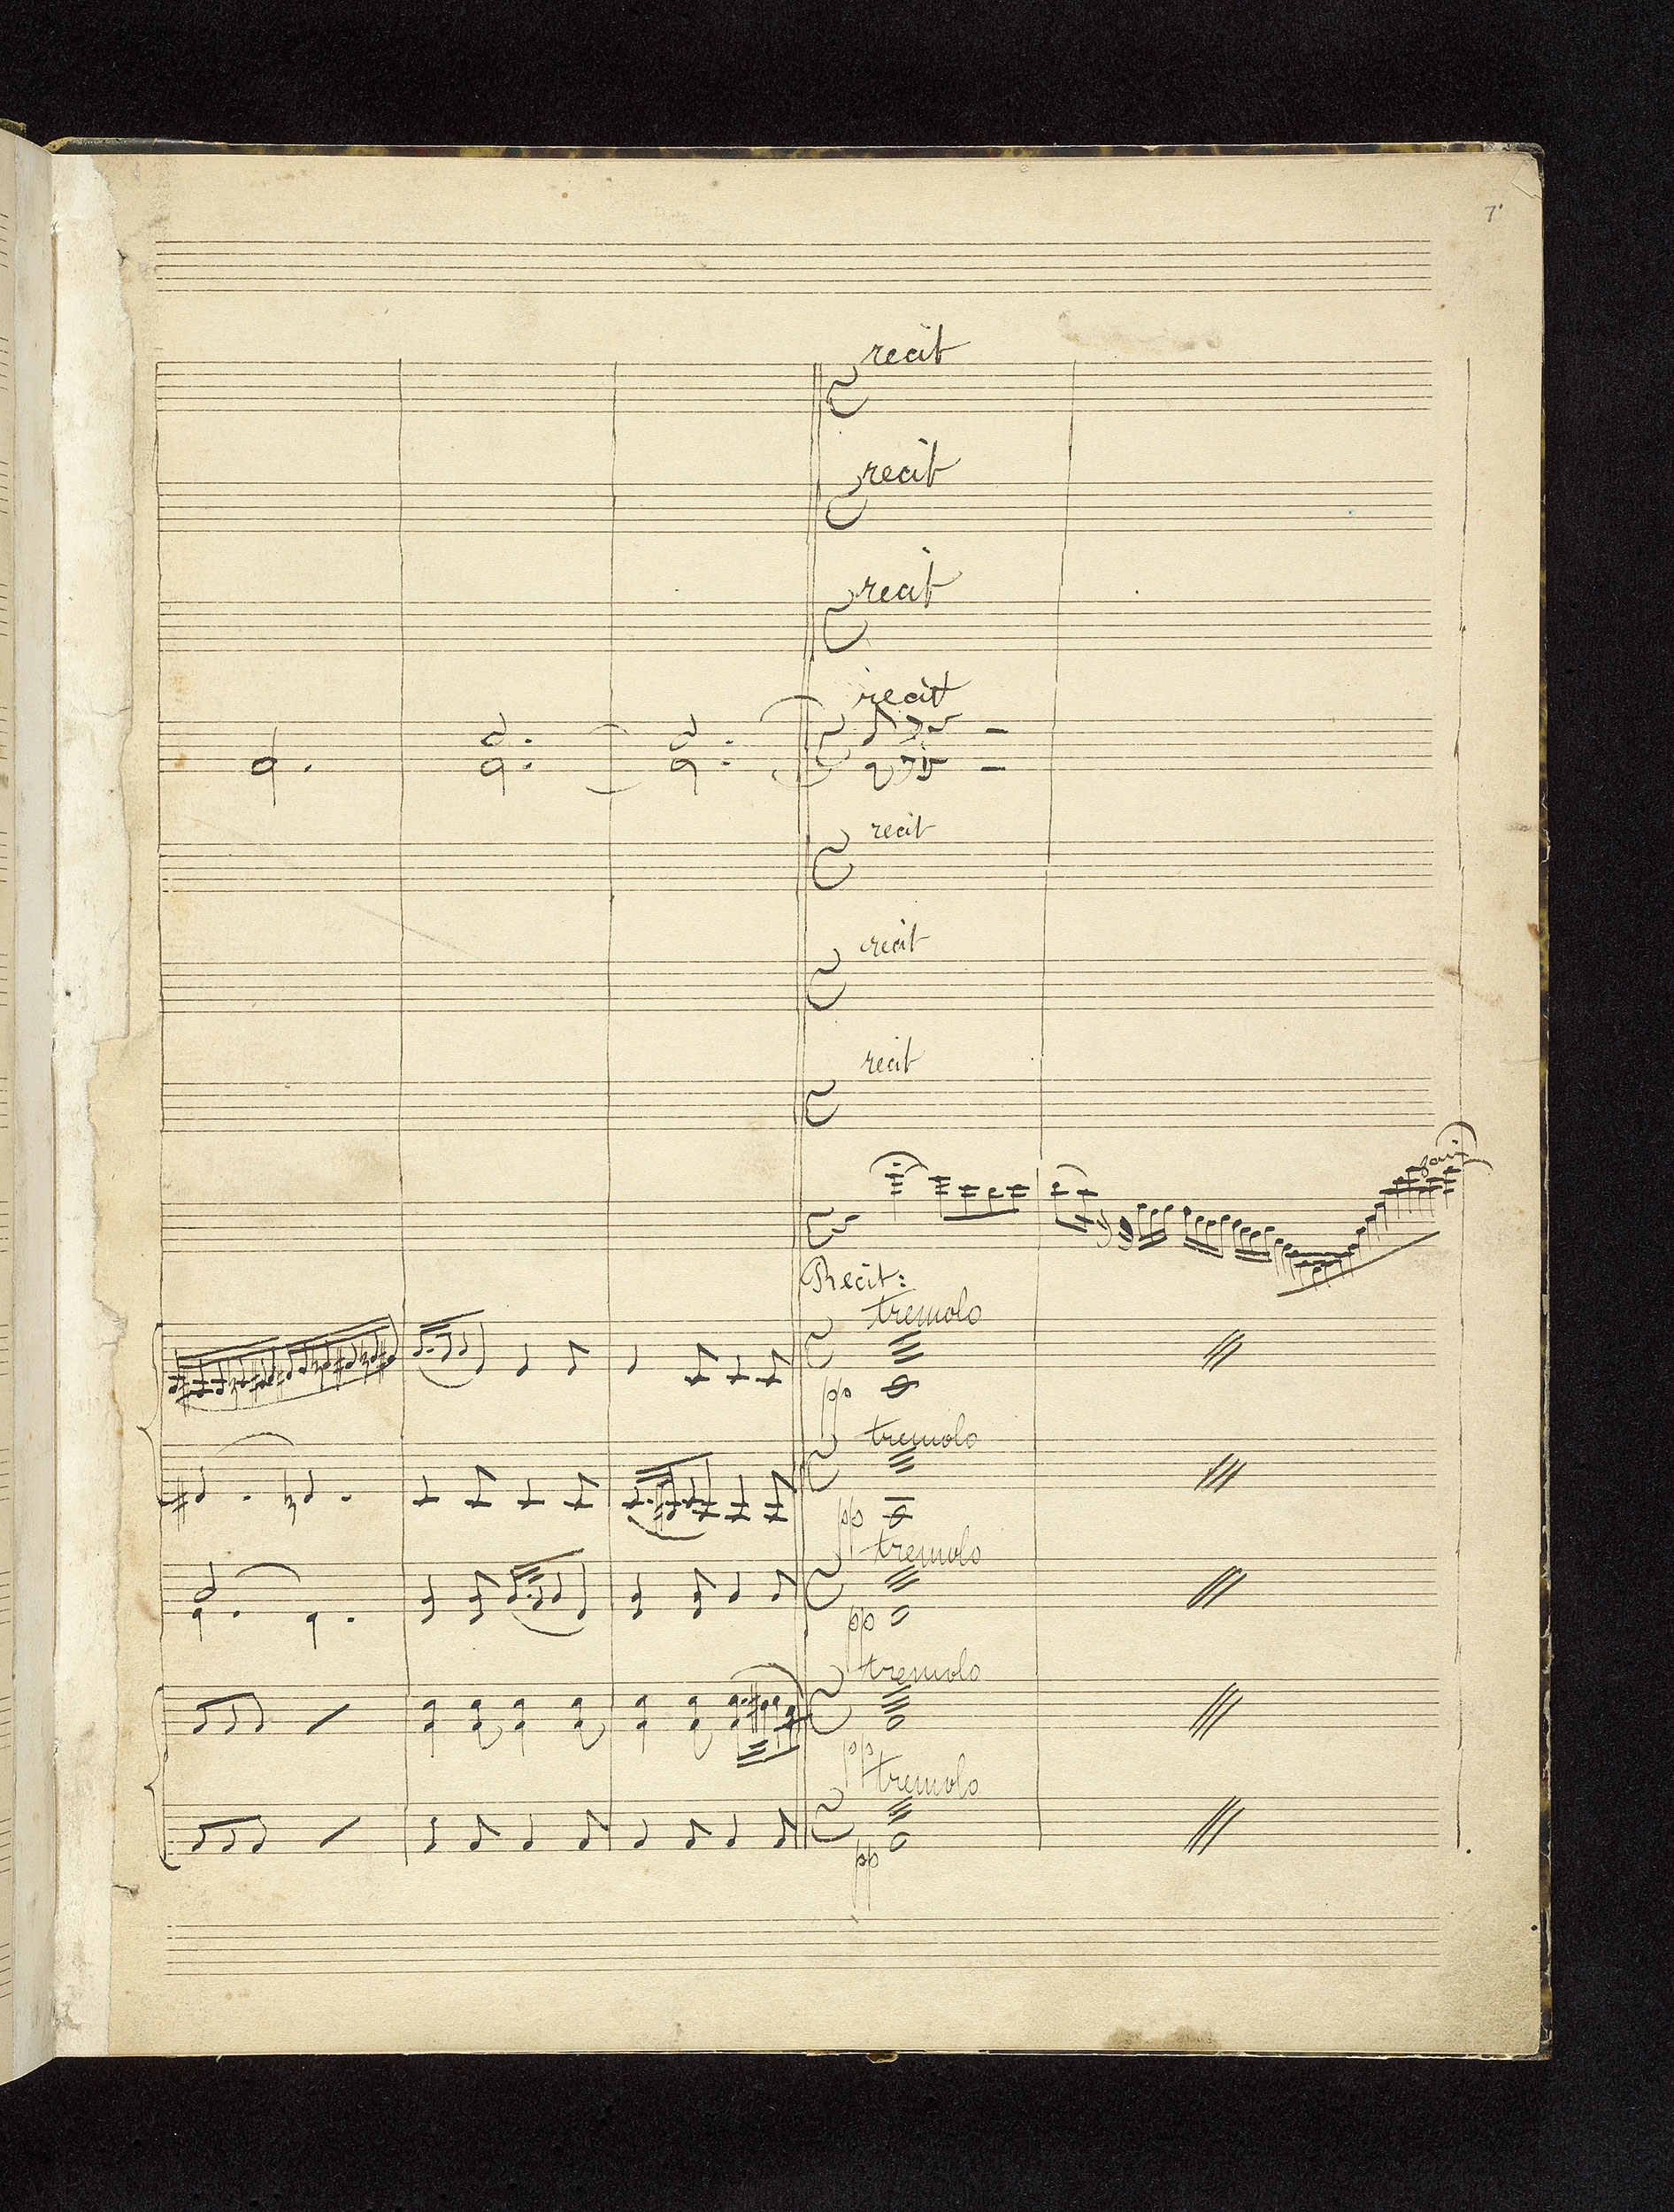 7.
recit
recit
recit
recit
recit
recit
recit
Recit:
tremolo
pp
tremolo
pp
tremolo
pp
tremolo
pp
tremolo
pp